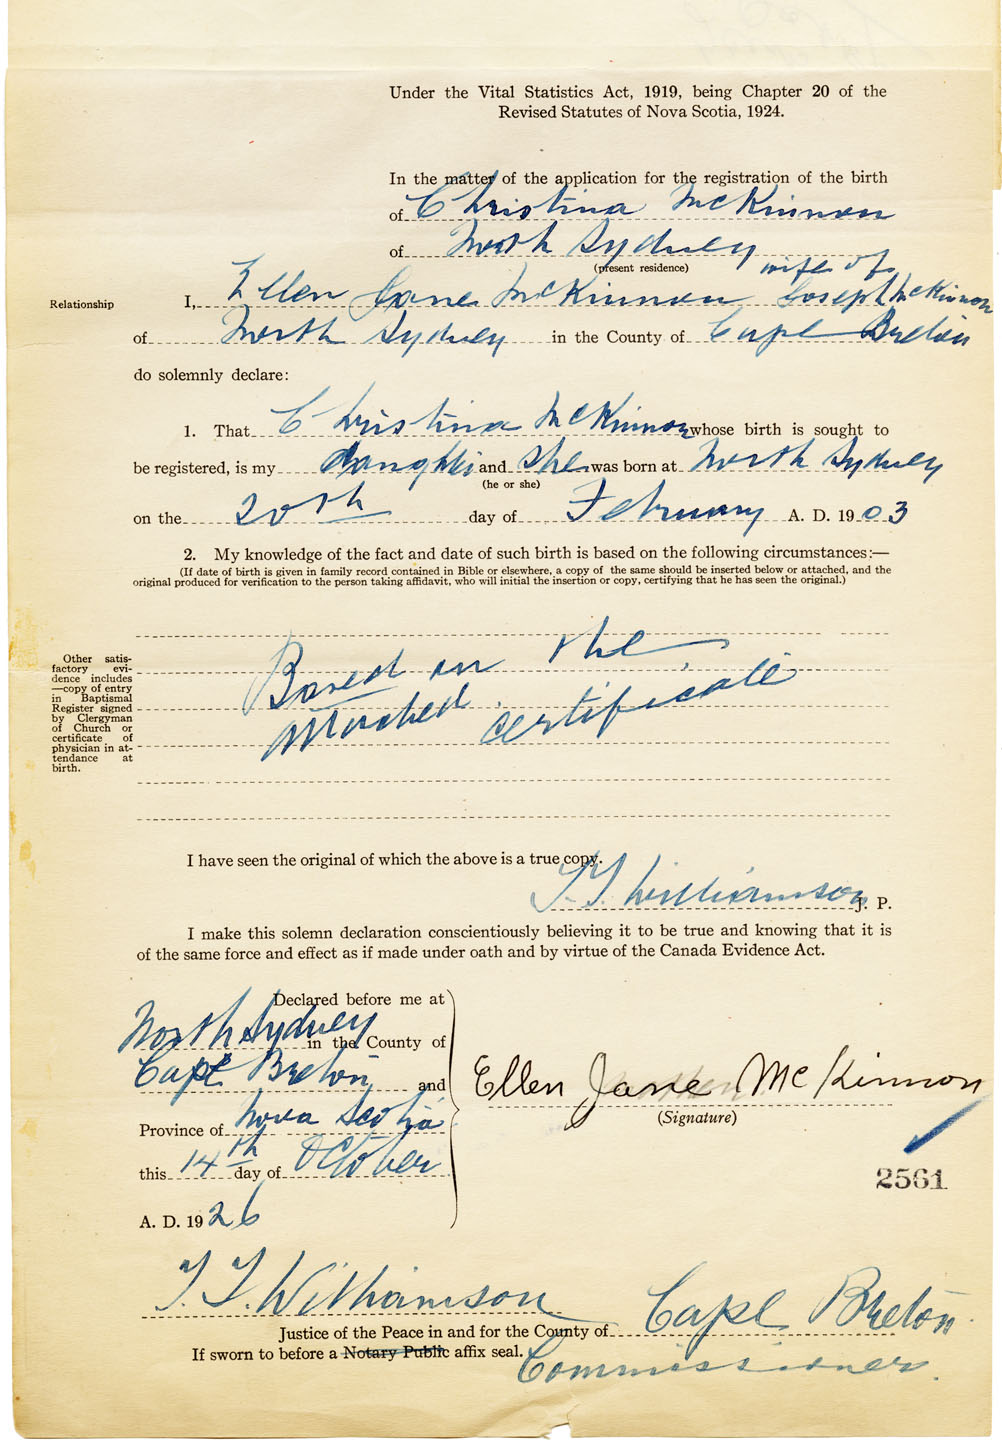 Under the Vital Statistics Act, 1919, being Chapter 20 of the
Revised Statutes of Nova Scotia, 1924.
In the matter of the application for the registration of the birth
of Christina McKinnon
of North Sydney
(present residence)
wife of
Relationship I, Ellen Jane McKinnon Joseph McKinnon
of North Sydney in the County of Cape Breton
do solemnly declare:
1. That Christina McKinnon whose birth is sought to
be registered, is my daughter and she was born at North Sydney
(he or she)
on the 20th day of February A. D. 1903
2. My knowledge of the fact and date of such birth is based on the following circumstances:—
(If date of birth is given in family record contained in Bible or elsewhere, a copy of the same should be inserted below or attached, and the
original produced for verification to the person taking affidavit, who will initial the insertion or copy, certifying that he has seen the original.)
Other satis-
factory evi-
dence includes
—copy of entry
in Baptismal
Register signed
by Clergyman
of Church or
certificate of
physician in at-
tendance at
birth.
Based on the
attached certificate
I have seen the original of which the above is a true copy.
T. T. Williamson J. P.
I make this solemn declaration conscientiously believing it to be true and knowing that it is
of the same force and effect as if made under oath and by virtue of the Canada Evidence Act.
Declared before me at
North Sydney in the County of
Cape Breton and
Province of Nova Scotia
this 14th day of October
A. D. 1926
Ellen Jane McKinnon
(Signature)
2561
T. T. Williamson
Justice of the Peace in and for the County of Cape Breton
If sworn to before a Notary Public affix seal. Commissioner.